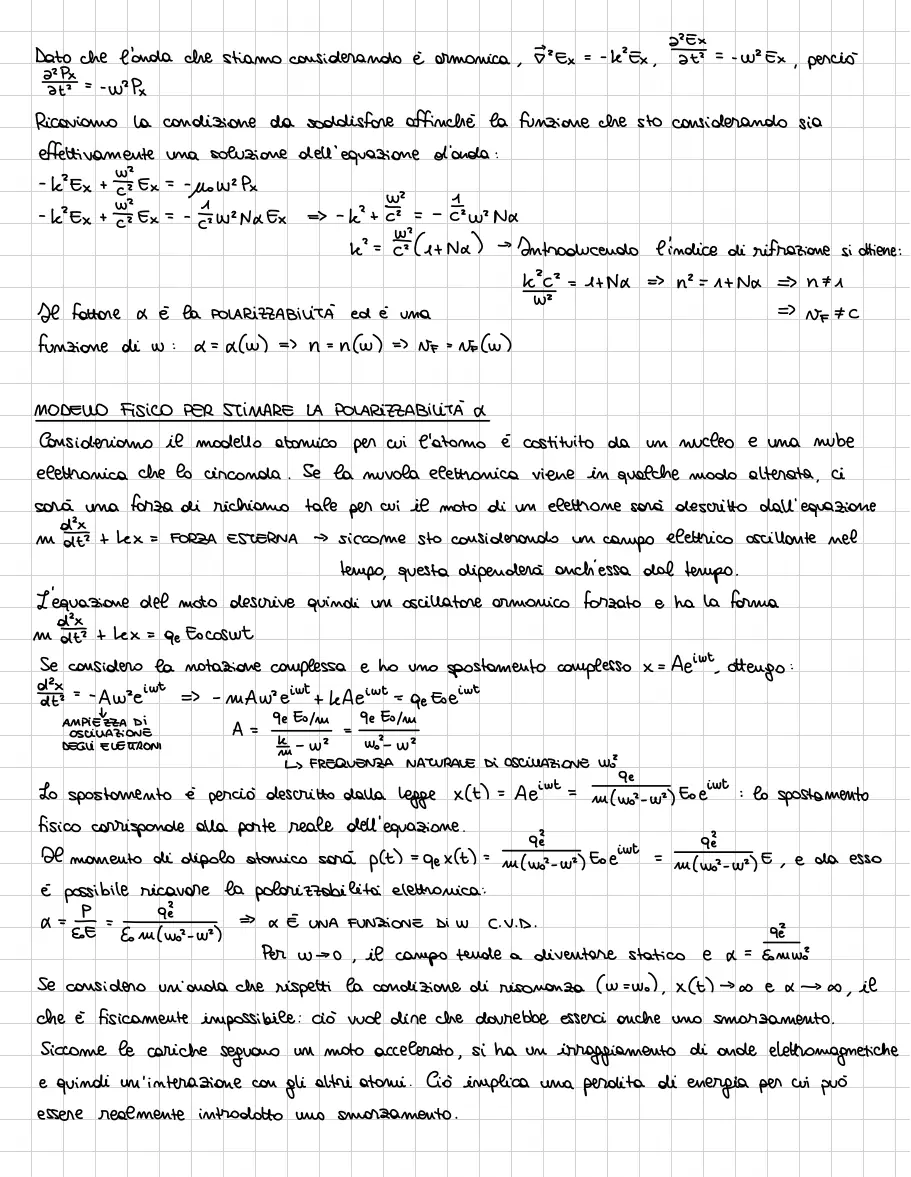 Dato che l'onda che stiamo considerando è armonica, ∇⃗²Ex = -k²Ex, ∂²Ex/∂t² = -ω²Ex, perciò
∂²Px/∂t² = -ω²Px
Ricaviamo la condizione da soddisfare affinché la funzione che sto considerando sia
effettivamente una soluzione dell'equazione d'onda:
-k²Ex + ω²/c² Ex = -μ₀ω²Px
-k²Ex + ω²/c² Ex = - 1/c² ω²NαEx => -k² + ω²/c² = - 1/c² ω²Nα
k² = ω²/c² (1+Nα) → Introducendo l'indice di rifrazione si ottiene:
k²c²/ω² = 1+Nα => n² = 1+Nα => n ≠ 1
Il fattore α è la POLARIZZABILITÀ ed è una => v_F ≠ c
funzione di ω: α = α(ω) => n = n(ω) => v_F = v_F(ω)
MODELLO FISICO PER STIMARE LA POLARIZZABILITÀ α
Consideriamo il modello atomico per cui l'atomo è costituito da un nucleo e una nube
elettronica che lo circonda. Se la nuvola elettronica viene in qualche modo alterata, ci
sarà una forza di richiamo tale per cui il moto di un elettrone sarà descritto dall'equazione
m d²x/dt² + kx = FORZA ESTERNA → siccome sto considerando un campo elettrico oscillante nel
tempo, questa dipenderà anch'essa dal tempo.
L'equazione del moto descrive quindi un oscillatore armonico forzato e ha la forma
m d²x/dt² + kx = qe E₀cosωt
Se considero la notazione complessa e ho uno spostamento complesso x = Ae^{iωt}, ottengo:
d²x/dt² = -Aω²e^{iωt} => -mAω²e^{iωt} + kAe^{iωt} = qe E₀e^{iωt}
↓
AMPIEZZA DI
OSCILLAZIONE
DEGLI ELETTRONI
A = (qe E₀/m)/(k/m - ω²) = (qe E₀/m)/(ω₀² - ω²)
↳ FREQUENZA NATURALE DI OSCILLAZIONE ω₀²
Lo spostamento è perciò descritto dalla legge x(t) = Ae^{iωt} = qe/(m(ω₀²-ω²)) E₀e^{iωt} : lo spostamento
fisico corrisponde alla parte reale dell'equazione.
Il momento di dipolo atomico sarà p(t) = qe x(t) = qe²/(m(ω₀²-ω²)) E₀e^{iωt} = qe²/(m(ω₀²-ω²)) E, e da esso
è possibile ricavare la polarizzabilità elettronica:
α = P/(ε₀E) = qe²/(ε₀m(ω₀²-ω²)) => α È UNA FUNZIONE DI ω C.V.D.
Per ω→0, il campo tende a diventare statico e α = qe²/(ε₀mω₀²)
Se considero un'onda che rispetti la condizione di risonanza (ω=ω₀), x(t)→∞ e α→∞, il
che è fisicamente impossibile: ciò vuol dire che dovrebbe esserci anche uno smorzamento.
Siccome le cariche seguono un moto accelerato, si ha un irraggiamento di onde elettromagnetiche
e quindi un'interazione con gli altri atomi. Ciò implica una perdita di energia per cui può
essere realmente introdotto uno smorzamento.